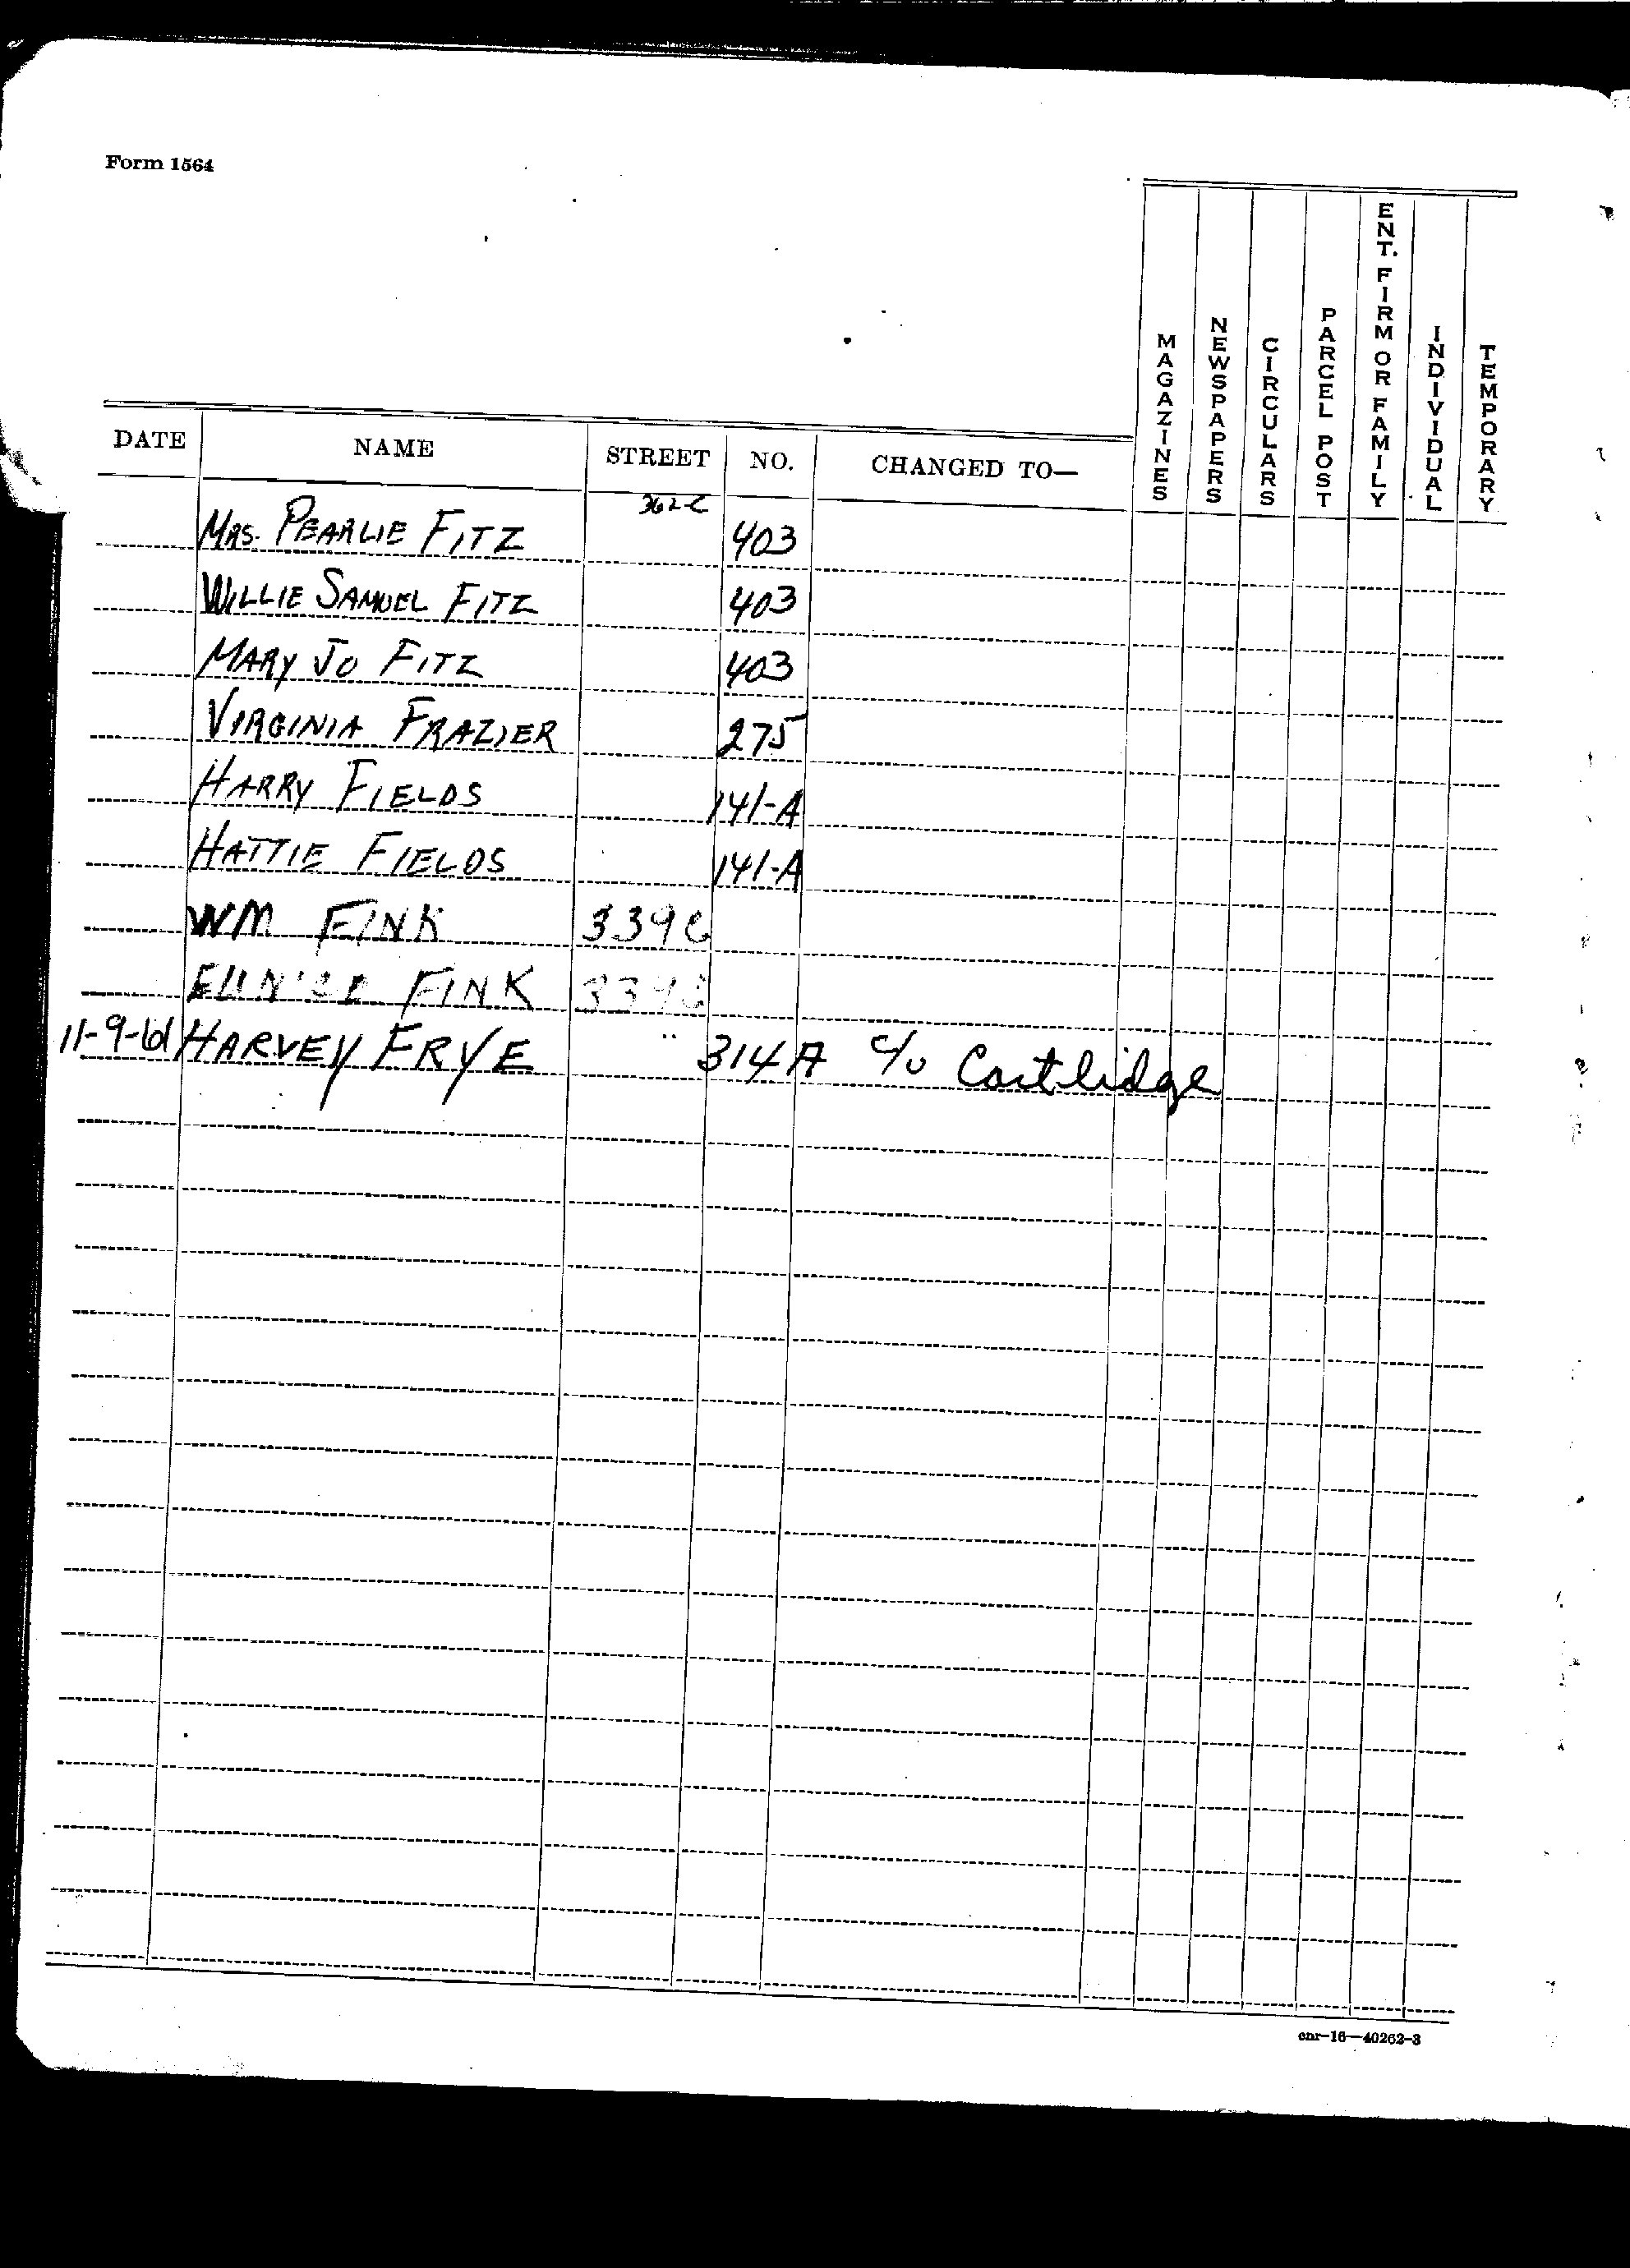 Form 1564
DATE NAME STREET NO. CHANGED TO— MAGAZINES NEWSPAPERS CIRCULARS PARCEL POST ENT. FIRM OR FAMILY INDIVIDUAL TEMPORARY
362-C
MRS. PEARLIE FITZ 403
WILLIE SAMUEL FITZ 403
MARY JO FITZ 403
VIRGINIA FRAZIER 275
HARRY FIELDS 141-A
HATTIE FIELDS 141-A
WM FINK 339C
FINK 339C
11-9-61 HARVEY FRYE " 314A c/o Cartlidge
cnr-16—40262-3